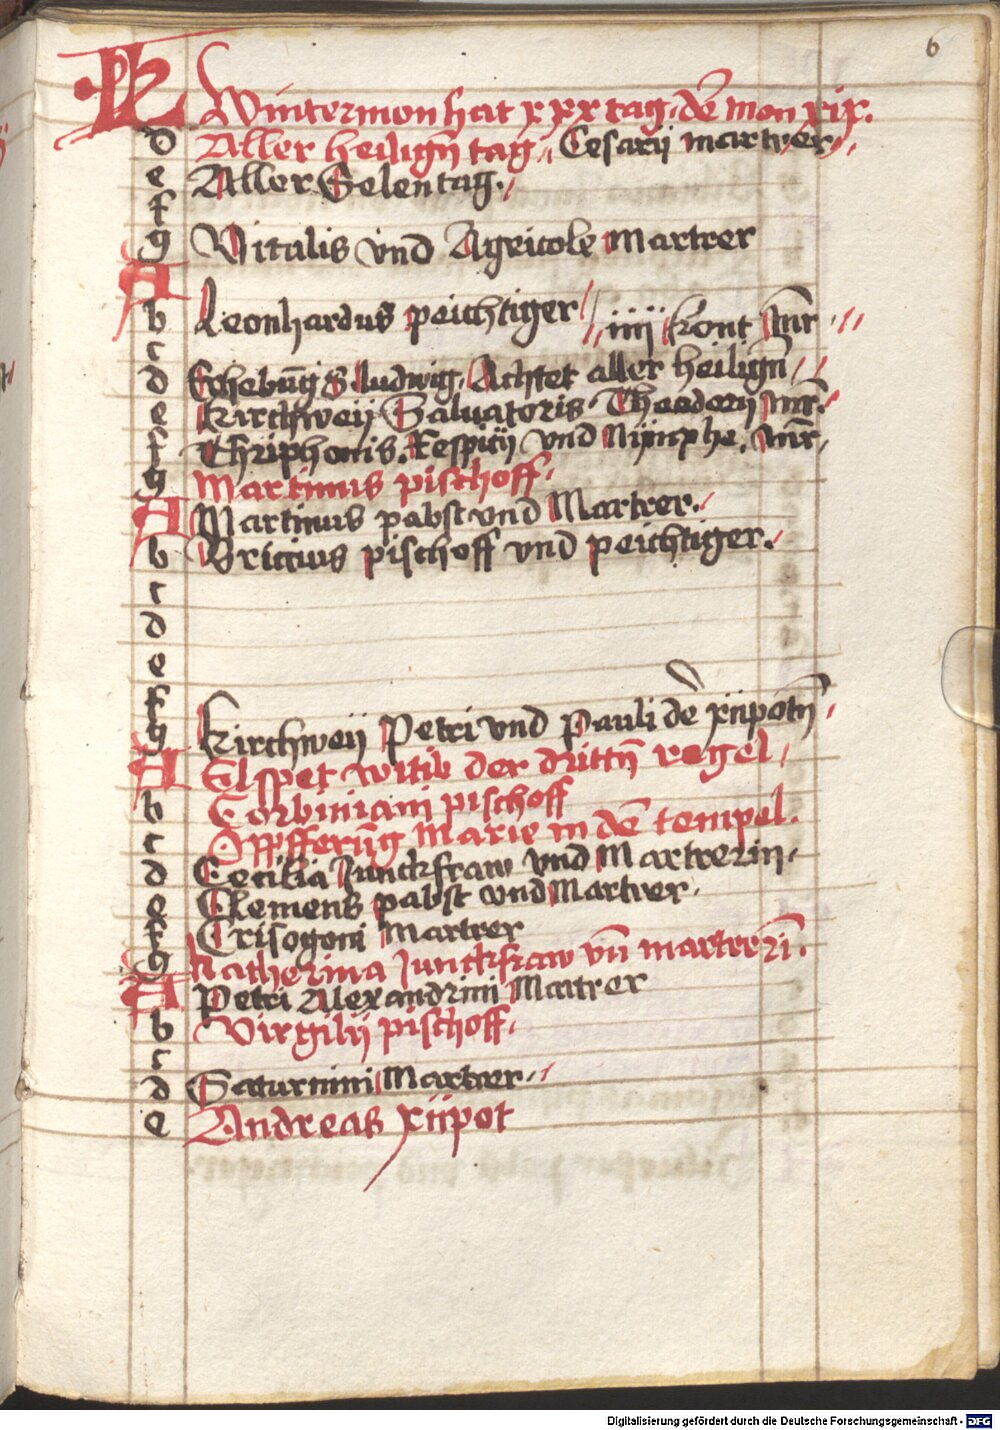 6
KL Wintermon hat xxx tag. dē mon xix.
d Aller heiligñ tag, Cesarij martrer
e Aller Selen tag.
f
g Vitalis vnd Agricole Martrer
A
b Leonhardus peichtiger iiij kront Mr̄
c
d Erhebūg S. ludwig. Achtet aller heiligñ
e Kirchweij Saluatoris Theodorij Mr̄.
f Thriphonis. Respicij vnd Nijmphe. Mr̄
g Martinus pischoff.
A Martinus pabst vnd Martrer.
b Bricius pischoff vnd peichtiger.
c
d
e
f
g Kirchweij Petri vnd Pauli de xijpotñ
A Elspet witib der drittñ regel
b Corbiniani pischoff
c Opfferūg Marie in dē tempel.
d Cecilia Junckfraw vnd Martrerin.
e Clemens pabst vnd Martrer.
f Crisogoni Martrer
g Katherina Junckfraw vn̄ martrerī.
A Petri Alexandrini Martrer
b Virgilij pischoff.
c
d Saturnini Martrer
e Andreas xijpot
Digitalisierung gefördert durch die Deutsche Forschungsgemeinschaft - DFG